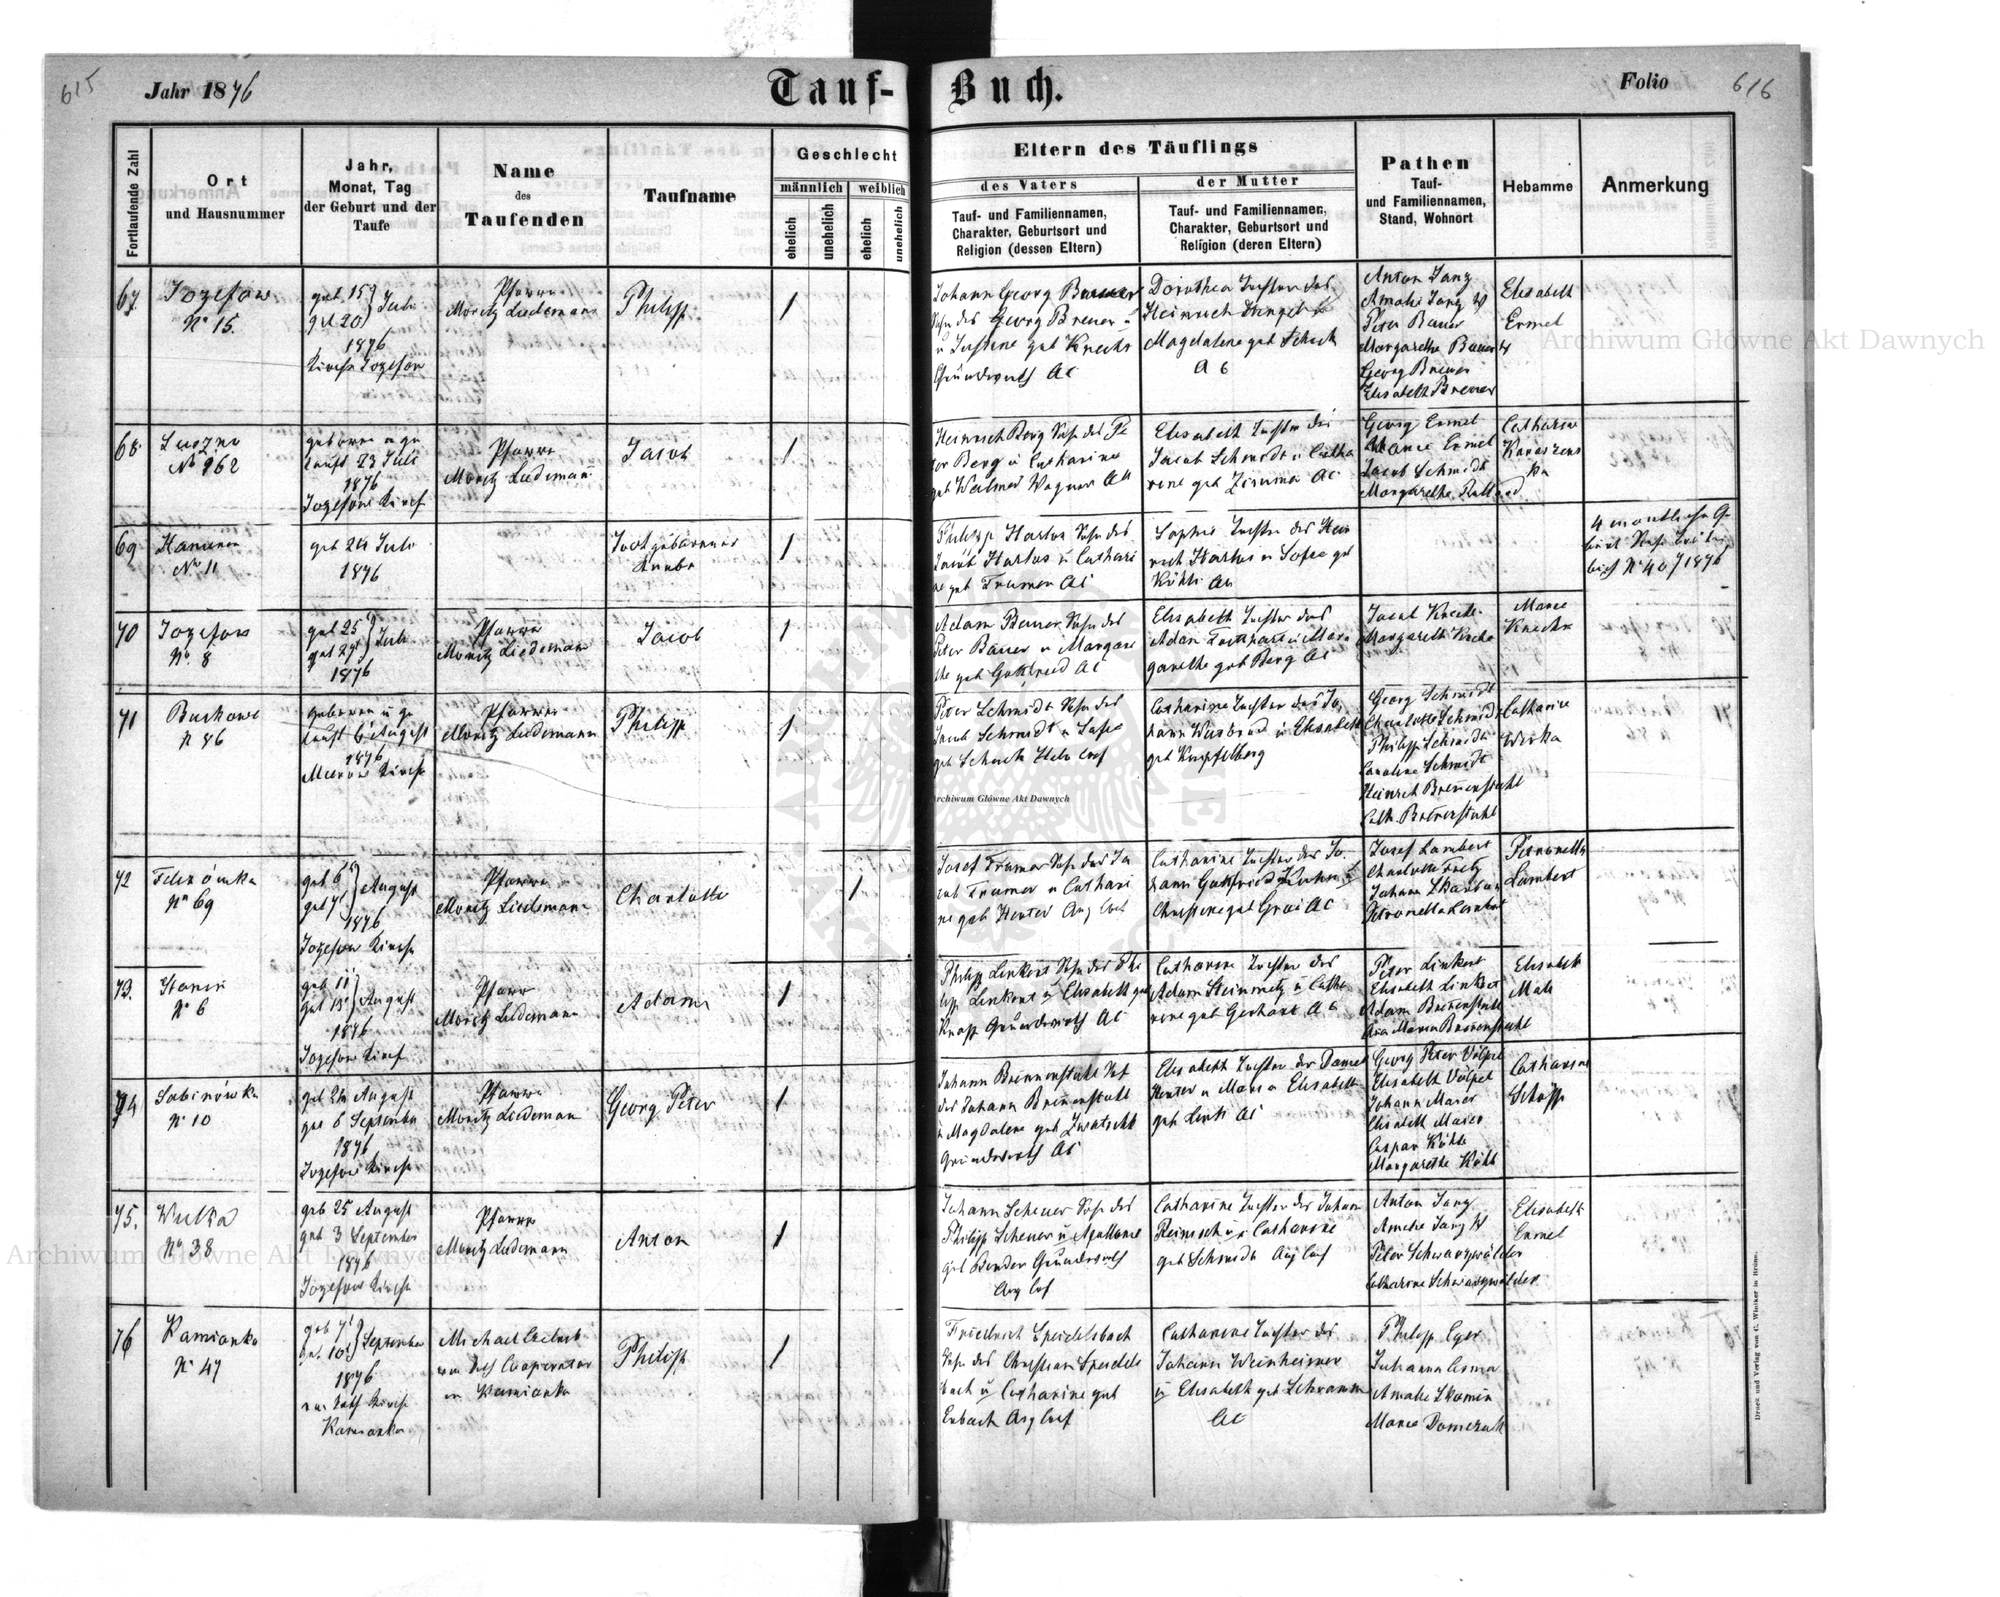 615
Jahr 1876
Tauf-Buch.
Folio
616
Fortlaufende Zahl
Ort
und Hausnummer
Jahr,
Monat, Tag
der Geburt und der
Taufe
Name
des
Taufenden
Taufname
Geschlecht
männlich
weiblich
ehelich
unehelich
ehelich
unehelich
Eltern des Täuflings
des Vaters
Tauf- und Familiennamen,
Charakter, Geburtsort und
Religion (dessen Eltern)
der Mutter
Tauf- und Familiennamen,
Charakter, Geburtsort und
Religion (deren Eltern)
Pathen
Tauf-
und Familiennamen,
Stand, Wohnort
Hebamme
Anmerkung
67.
Jozefow
No 15.
geb 15
get 20 Juli
1876
Kirche Jozefow
Pfarrer
Moritz Liedemann
Philipp
1
Johann Georg Breuer
Sohn des Georg Breuer u
u Justine geb Knecht
Grundwirth AC
Dorothea Tochter des
Heinrich
Magdalene geb Schuck
AC
Anton Jang
Amalie Jang
Peter Bauer
Margarethe Bauer
Georg Breuer
Elisabeth Breuer
Elisabeth
Ermel
68.
No 262
geboren u ge
tauft 23 Juli
1876
Jozefow Kirch
Pfarrer
Moritz Liedemann
Jacob
1
Heinrich Berg Sohn des Pe
ter Berg u Catharine
geb Wagner
Elisabeth Tochter des
Jacob Schmidt u Catha
rine geb Zimmer AC
Georg Ermel
Marie Ermel
Jacob Schmidt
Margarethe
Catharine
69
No 11
geb 24 Juli
1876
Todtgeborener
Knabe
1
Philipp Hartus Sohn des
Jacob Hartus u Cathari
ne geb Trumer AC
Sophie Tochter des Hein
rich Hartus u Sofie geb
Köhli
4 monatliche Ge
burt
No 40/1876
70
Jozefow
No. 8
geb 25
get 27 Juli
1876
Pfarrer
Moritz Liedemann
Jacob
1
Adam Bauer Sohn des
Peter Bauer u Margare
the geb Gottfried AC
Elisabeth Tochter des
Adam u Mar
garethe geb Berg AC
Jacob Knecht
Margareth
Marie
Knecht
71
N 86
geboren u ge
tauft 6 August
1876
Kirche
Pfarrer
Moritz Liedemann
Philipp
1
Peter Schmidt Sohn des
Jacob Schmidt u Sofie
geb Schuck
Catharine Tochter des Jo
hann u Elisabeth
geb Kupfelberg
Georg Schmidt
Charlotte Schmidt
Philipp Schmidt
Caroline Schmidt
Heinrich Brennenstuhl
Cath.
Catharine
72
No 69
geb 6
get 7 August
1876
Jozefow Kirche
Pfarrer
Moritz Liedemann
Charlotte
1
Josef Trumer Sohn des Ja
cob Trumer u Cathari
ne geb Henter Aug Conf
Catharine Tochter des Jo
hann Gottfried Kuhn u
Christine geb AC
Josef Lambert
Charlotte
Johann
Petronella Lambert
Petronella
Lambert
73.
Stanin
No 6
geb 11
get 13 August
1876
Jozefow Kirch
Pfarrer
Moritz Liedemann
Adam
1
Philipp Linkert Sohn des Phi
lipp Linkert u Elisabeth geb
Knapp Grundwirth AC
Catharine Tochter des
Adam Steinmetz u Catha
rine geb Gerhart AC
Peter Linkert
Elisabeth Linkert
Adam Brennenstuhl
Maria Brennenstuhl
Elisabeth
74
Sabinówka
No 10
geb 24 August
get 6 September
1876
Jozefow Kirche
Pfarrer
Moritz Liedemann
Georg Peter
1
Johann Brennenstuhl
des Johann Brennenstuhl
u Magdalene geb
Grundwirth AC
Elisabeth Tochter der Daniel
Henter u Maria Elisabeth
geb AC
Georg Peter Völpel
Elisabeth Völpel
Johann Maier
Elisabeth Maier
Caspar Köhli
Margarethe Köhli
Catharine
Schöpp
75.
Wulka
No 38
geb 25 August
get 3 September
1876
Jozefow Kirche
Pfarrer
Moritz Liedemann
Anton
1
Johann Scheuer Sohn des
Philipp Scheuer u Apollonie
geb Bender Grundwirth
Aug Conf
Catharine Tochter des Johann
Reinisch u Catharine
geb Schmidt Aug Conf
Anton Jang
Amalie Jang
Peter Schwarzwälder
Catharine Schwarzwälder
Elisabeth
Ermel
76
Kamionka
No 47
geb 7
get 10 September
1876
Kirche
Kamionka
Michael
Cooperator
in Kamionka
Philipp
1
Friedrich Speidelsbach
Sohn des Christian Speidels
bach u Catharine geb
Enbach Aug Conf
Catharine Tochter des
Johann Weinheimer
u Elisabeth geb Schramm
AC
Philipp Eger
Johanna
Amalie
Marie
Druck und Verlag von C. Winiker in Brünn.
Archiwum Główne Akt Dawnych
Archiwum Główne Akt Dawnych
Archiwum Główne Akt Dawnych